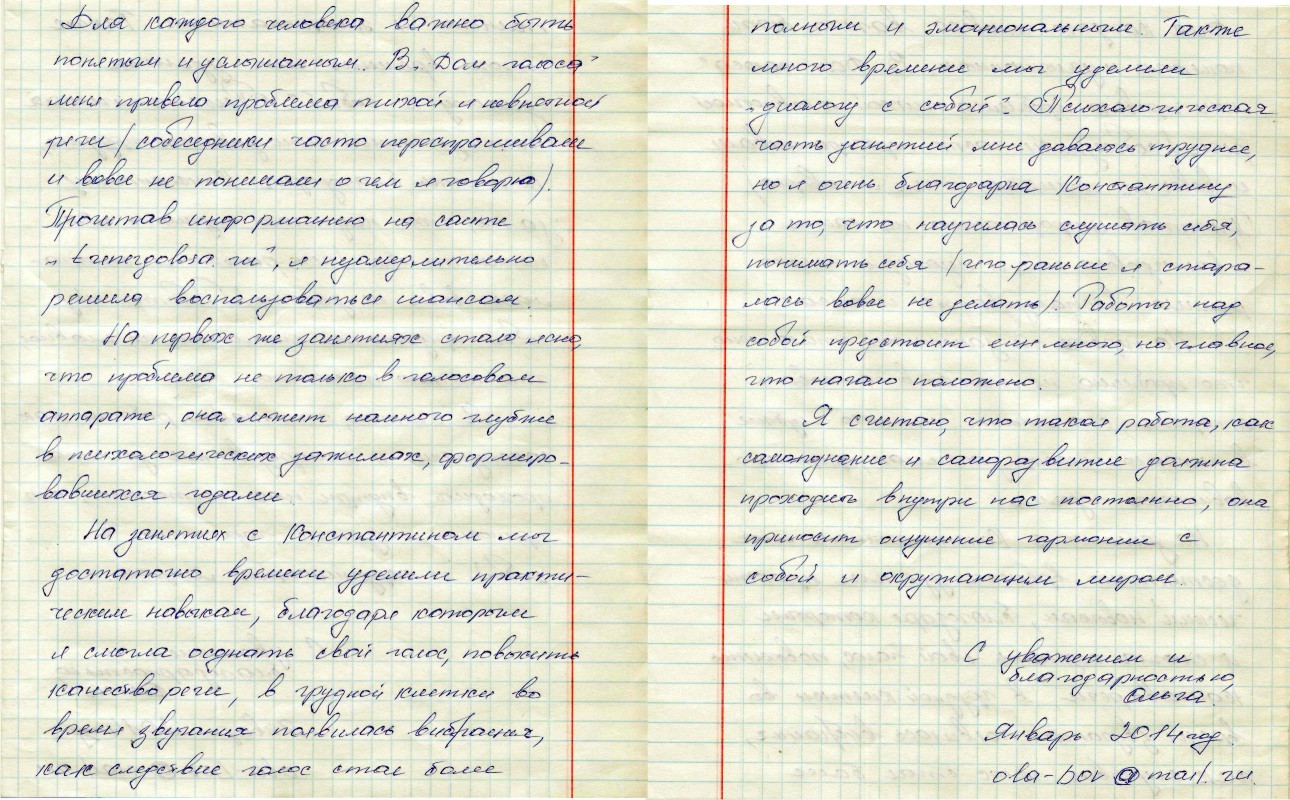 Для каждого человека важно быть
понятым и услышанным. В „Дом голоса"
меня привела проблема тихой и невнятной
речи (собеседники часто переспрашивали
и вовсе не понимали о чем я говорю).
Прочитав информацию на сайте
„trenergolosa.ru", я незамедлительно
решила воспользоваться шансом.
На первых же занятиях стало ясно,
что проблема не только в голосовом
аппарате, она лежит намного глубже
в психологических зажимах, формиро-
вавшихся годами.
На занятиях с Константином мы
достаточно времени уделили практи-
ческим навыкам, благодаря которым
я смогла осознать свой голос, повысить
качество речи, в грудной клетке во
время звучания появилась вибрация,
как следствие голос стал более
полным и эмоциональным. Также
много времени мы уделили
„диалогу с собой". Психологическая
часть занятий мне давалось труднее,
но я очень благодарна Константину
за то, что научилась слушать себя,
понимать себя (чего раньше я стара-
лась вовсе не делать). Работы над
собой предстоит еще много, но главное,
что начало положено.
Я считаю, что такая работа, как
самопознание и саморазвитие должна
проходить внутри нас постоянно, она
приносит ощущение гармонии с
собой и окружающим миром.
С уважением и
благодарностью,
Ольга.
Январь 2014 год.
ola-bov@mail.ru